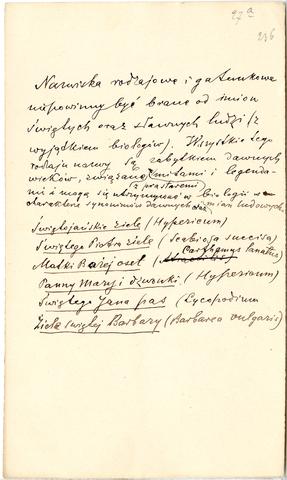 27ª
236
Nazwiska rodzajowe i gatunkowe
niepowinny być brane od imion
świętych oraz sławnych ludzi (z
wyjątkiem biologów). Wszystkie tego
rodzaju nazwy są zabytkiem dawnych
wieków, związane z mitami i legenda-
mi i mogą się utrzymywać w biologii w
(z prastaremi)
charakterze synonimów dawnych oraz imion ludowych.
Świętojańskie ziele (Hypericum)
Świętego Piotra ziele (Scabiosa succisa)
Carthamus lanatus
Matki Bożej oset
Panny Maryi dzwonki (Hypericum)
Świętego Jana pas (Lycopodium
Ziele świętej Barbary (Barbarea vulgaris)